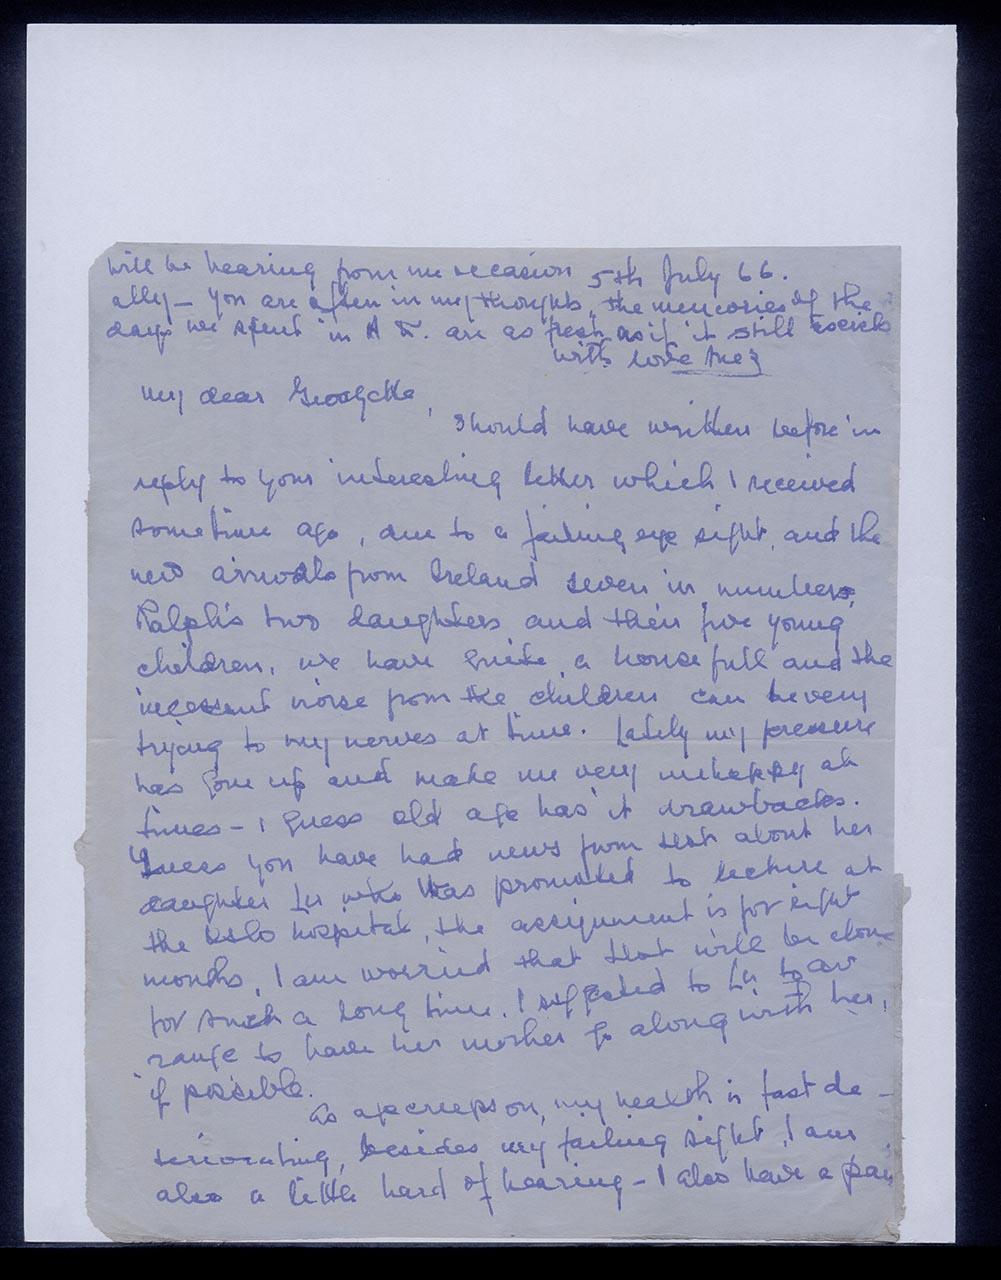 will be hearing from me occasion 5th July 66.
ally – you are often in my thoughts, the memories of the
days we spent in A. are as fresh as if it still exists
with love
My dear
Should have written before in
reply to your interesting letter which I received
sometime ago, due to a failing eye sight, and the
new arrivals from Ireland seven in numbers,
Ralph's two daughters and their five young
children, we have quite a house full and the
incessent noise from the children can be very
trying to my nerves at time. Lately my pressure
has gone up and make me very unhappy at
times – I guess old age has it drawbacks.
Guess you have had news from about her
daughter who was promoted to lecture at
the Oslo hospital, the assignment is for eight
months, I am worried that will be alone
for such a long time. I suggested to to ar
range to have her mother go along with her,
if possible.
As age creeps on, my health is fast de –
teriorating, besides my failing sight, I am
also a little hard of hearing – I also have a pain